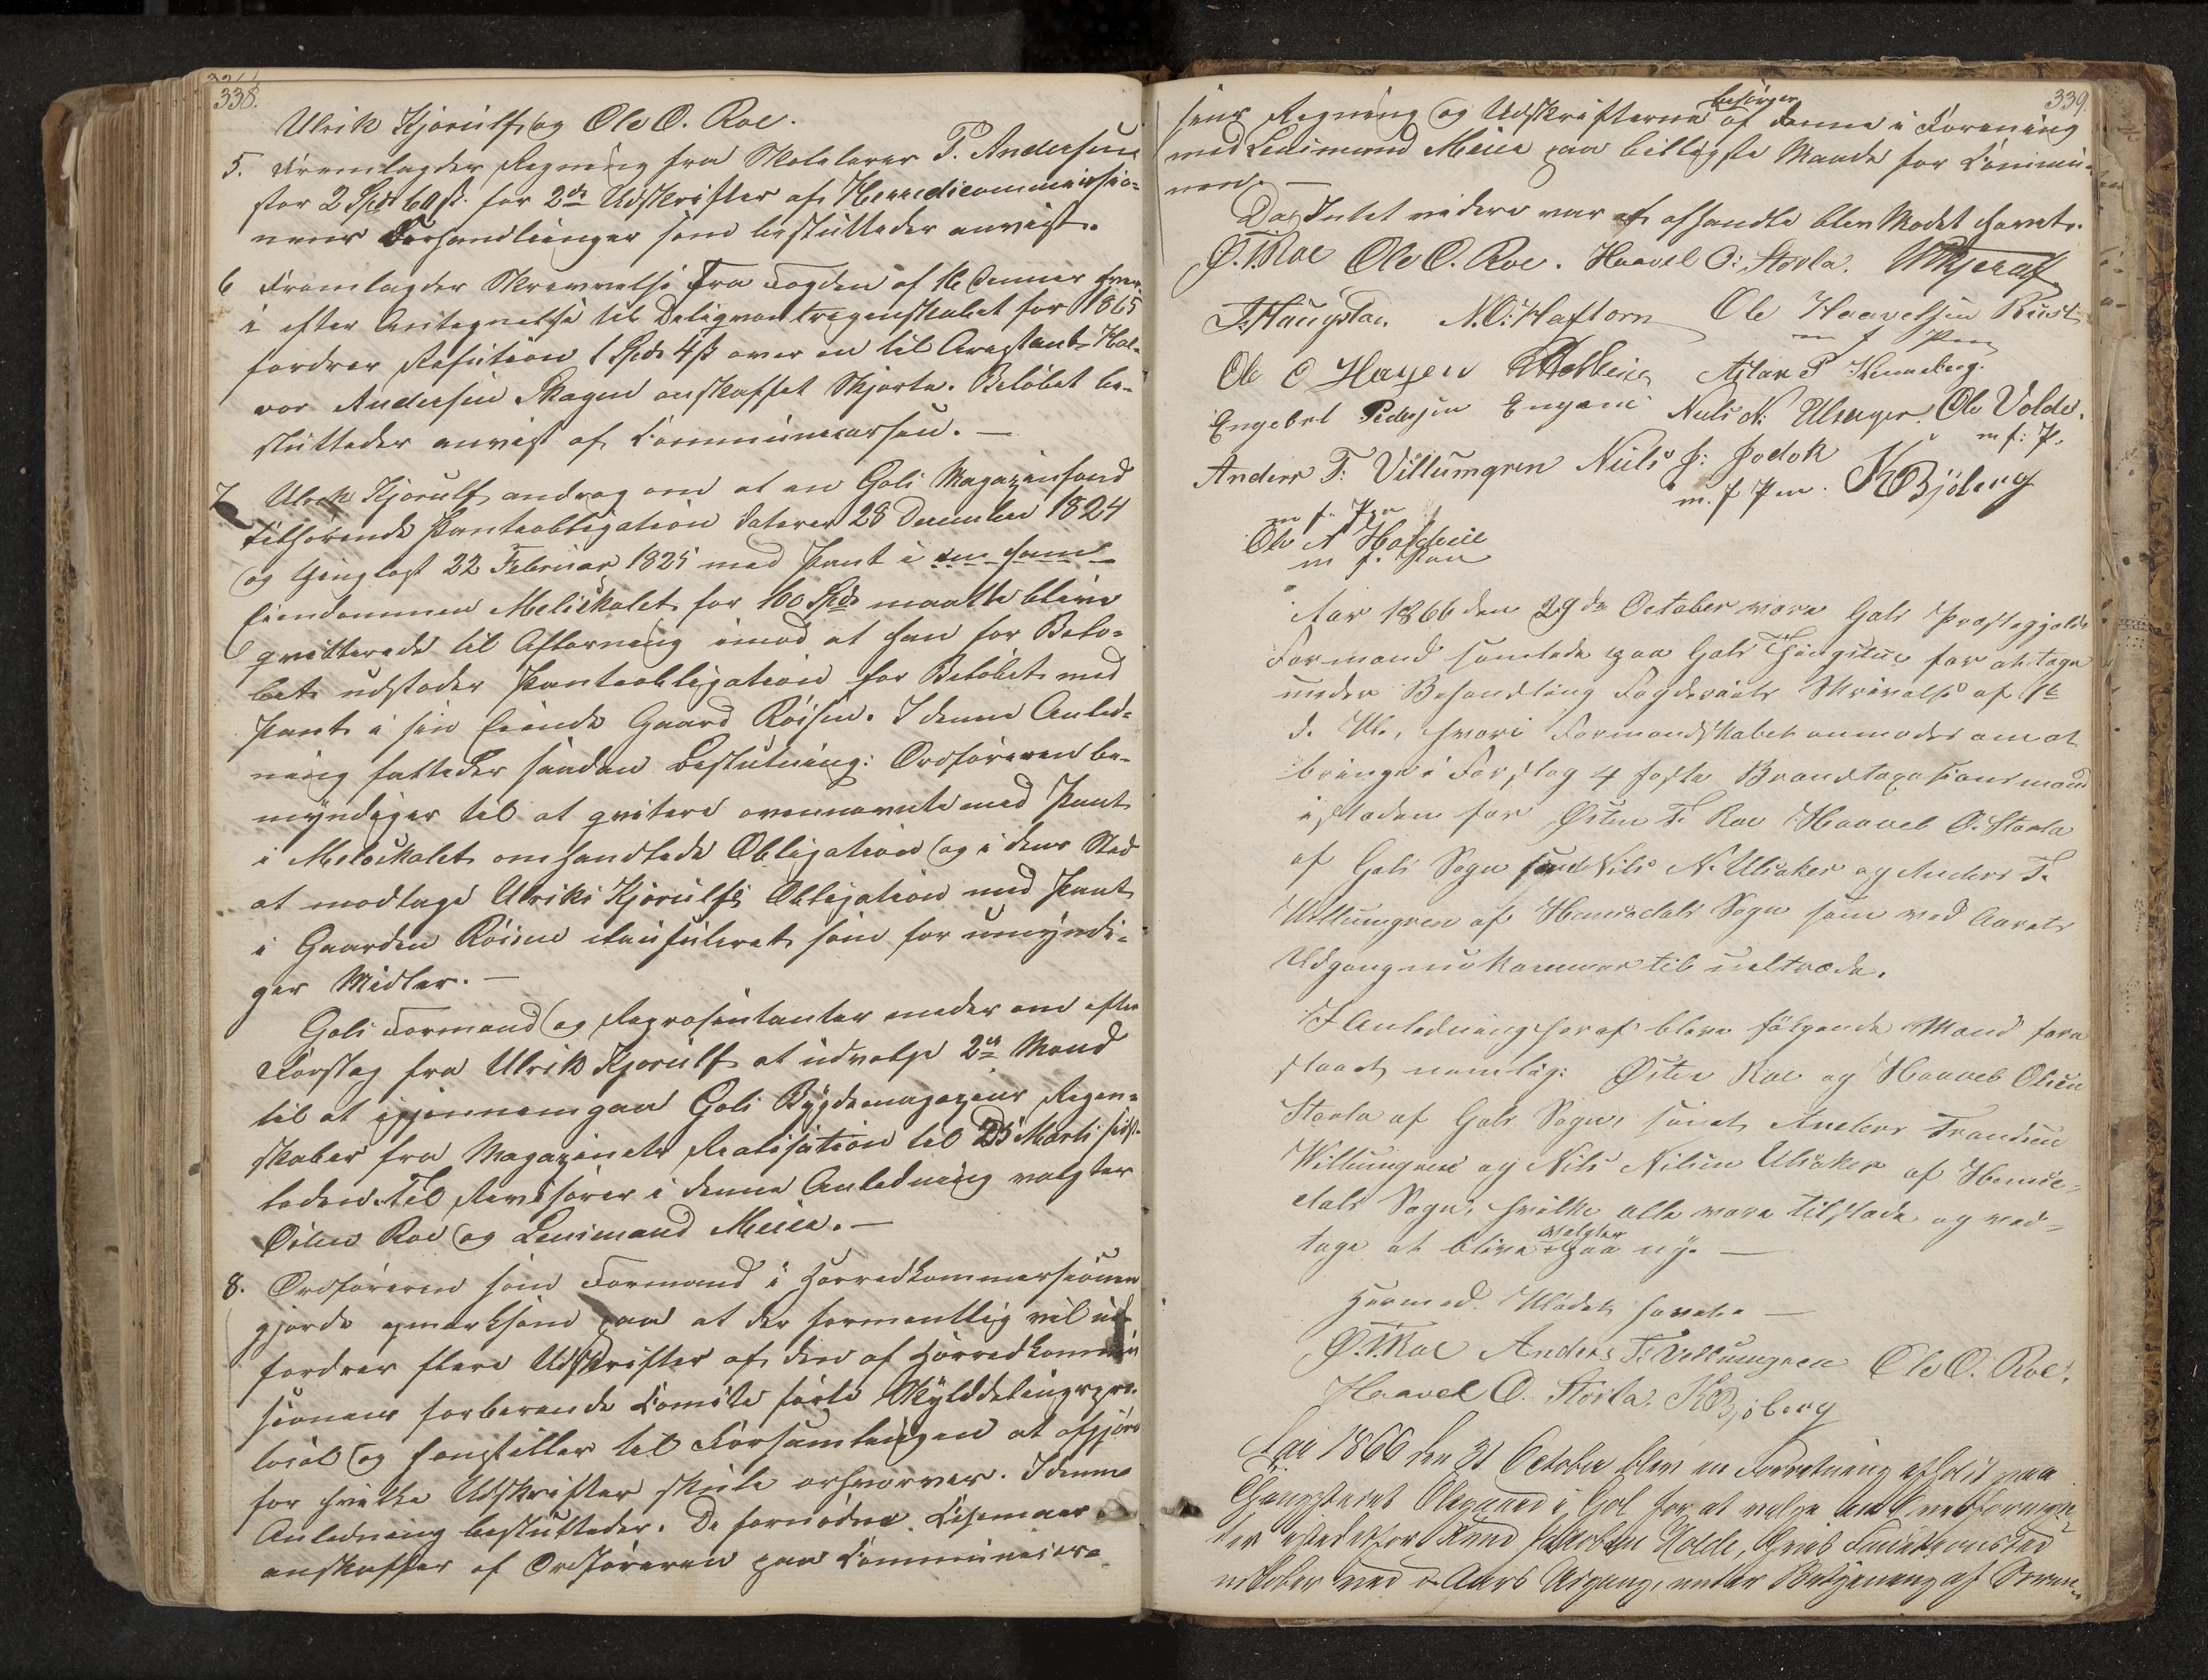 338.
Ulrik Kjørulf og Ole O. Roe.
5. Fremlagdes Regning fra Skolelærer P. Andersen
stor 2 Spd 60 ß. for 2de Udskrifter af Herredscommissio-
nens Forhandlinger som besluttedes anvist.
6 Fremlagdes Skrivelse fra Fogden af 16 denne hvor-
i efter Antegnelse til Delignantregnskabet for 1865
fordres Refusion 1 Spd 4 ß over en til Arrestant Hal-
vor Andersen Skagen anskaffet Skjorte. Beløbet be-
sluttedes anvist af Communecassen. —
7. Ulrik Kjørulf androg om at en Gols Magazinfond
tilhørende Panteobligation dateret 28 December 1824
og thinglæst 22 Februar 1825 med Pant i
Eiendommen for 100 Spd. maatte blive
qvitterede til Aflæsning imod at han for Belø-
bet udsteder Panteobligation for Beløbet med
Pant i sin Eiende Gaard Røisen. I denne Anled-
ning fattedes saadan Beslutning: Ordføreren be-
myndiges til at qvitere ovennævnte med Pant
i omhandlede Obligation og i dens Sted
at modtage Ulriks Kjørulfs Obligation med Pant
i Gaarden Røisen clausuleret som for umyndi-
ges Midler. —
Gols Formænd og Repræsentanter enedes om efter
Forslag fra Ulrik Kjørulf at udvælge 2de Mænd
til at gjennemgaa Gols Bygdemagazins Regn-
skaber fra Magazinets Realisation til 25 Marts sidst-
leden. Til Revisorer i denne Anledning valgtes
Østen Roe og Lensmand Meier. —
8. Ordføreren som Formand i Herredkommissionen
gjorde opmærksom paa at der formentlig vil ud-
fordres flere Udskrifter af den af Herredkommis-
sionens forberende Comite førte Skylddelingspro-
tocol og henstiller til Forsamlingen at afgjøre
for hvilke Udskrifter skule erhverves. I denne
Anledning besluttedes: De fornødne Exemplarer
anskaffes af Ordføreren paa Communecas-
339.
sens Regning og Udskrifterne besørges af denne i Forening
med Lensmand Meier paa billigste Maade for Commu-
nen. —
Da Intet videre var at afhandle blev Mødet hævet.
Ø. T. Roe Ole O. Roe. Haavel O: Storla. UKjerulf
T. Haugstad. N. O: Haftorn Ole Haavelsen Rust
m f Pen
Ole O Hagen Aslak P Henneberg.
Engebret Pedersen Engene Niels N: Ulsager. Ole Volde.
m f: P.
Anders T: Villumgren Niels J: Jodok KBjøberg
m. f Pen
m f: Pen
Ole A Halbeie
m f. Pen
Aar 1866 den 29de October vare Gols Præstegjelds
Formænd samlede paa Gols Thingstue for at tage
under Behandling Fogderiets Skrivelse af 1te
d. M., hvori Formandskabet anmodes om at
bringe i Forslag 4 faste Brandtaxationsmænd
istedenfor Østen T. Roe Haavel O. Storla
af Gols Sogn samt Nils N. Ulsaker og Anders T.
Willumgren af Hemsedals Sogn som ved Aarets
Udgang nu kommer til udtræde.
I Anledning heraf bleve følgende Mænd fore-
slaaet nemlig: Østen Roe og Haavel Olsen
Storla af Gols Sogn, samt Anders Trondsen
Willumgren og Nils Nilsen Ulsaker af Hemse-
dals Sogn, hvilke alle vare tilstæde og ved-
tage at blive valgte paa ny. —
Hermed Mødet hævet. —
Ø. T. Roe Anders T: Villumgren Ole O. Roe.
Haavel O. Storla. KBjøberg
Aar 1866 den 31 October blev en Forretning afholdt paa
Thingstedet i Gol for at vælge en
ter istedetfor Knud Jakobsen Holde, hvis Functionstid
udløber med d. Aars Udgang, under Bestyrelse af Sorens-